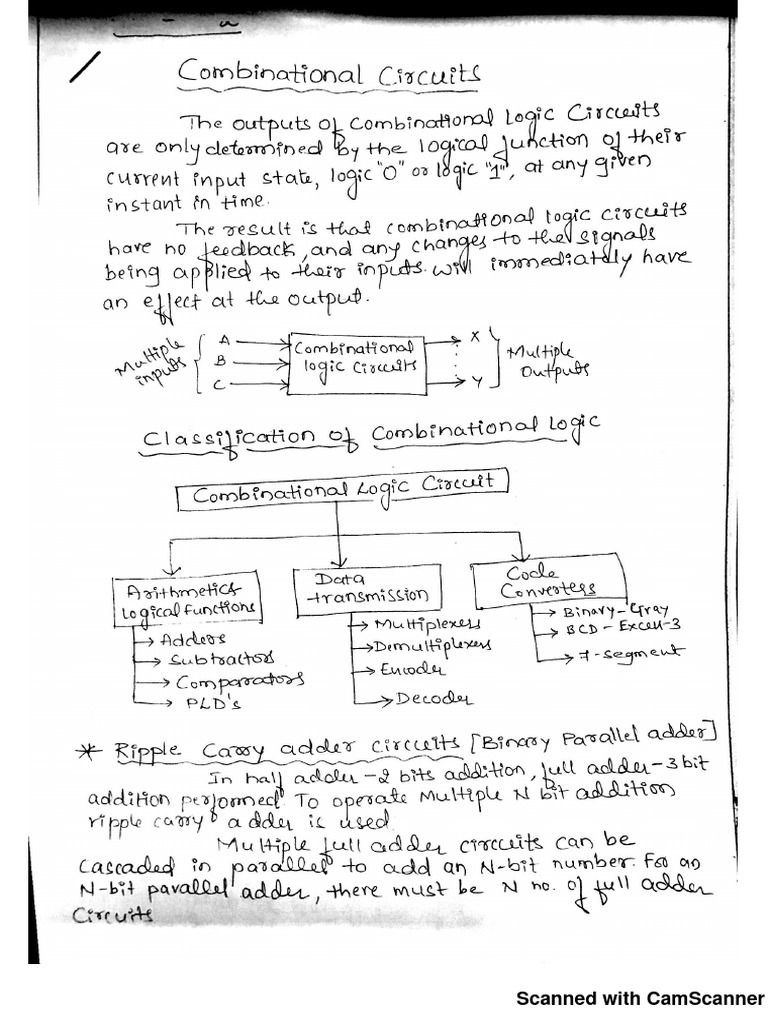 Combinational Circuits
The outputs of Combinational Logic Circuits
are only determined by the logical function of their
current input state, logic "0" or logic "1", at any given
instant in time.
The result is that combinational logic circuits
have no feedback, and any changes to the signals
being applied to their inputs will immediately have
an effect at the output.
Multiple
inputs
A
B
C
Combinational
logic Circuits
X
Y
Multiple
Outputs
Classification of Combinational Logic
Combinational Logic Circuit
Arithmetics
Logical functions
Adders
Subtractors
Comparators
PLD's
Data
transmission
Multiplexers
Demultiplexers
Encoder
Decoder
Code
Converters
Binary-Gray
BCD-Excess-3
7-segment
* Ripple Carry adder circuits [Binary Parallel adder]
In half adder-2 bits addition, full adder-3 bit
addition performed. To operate Multiple N bit addition
ripple carry adder is used.
Multiple full adder circuits can be
Cascaded in parallel to add an N-bit number. For an
N-bit parallel adder, there must be N no. of full adder
Circuits
Scanned with CamScanner